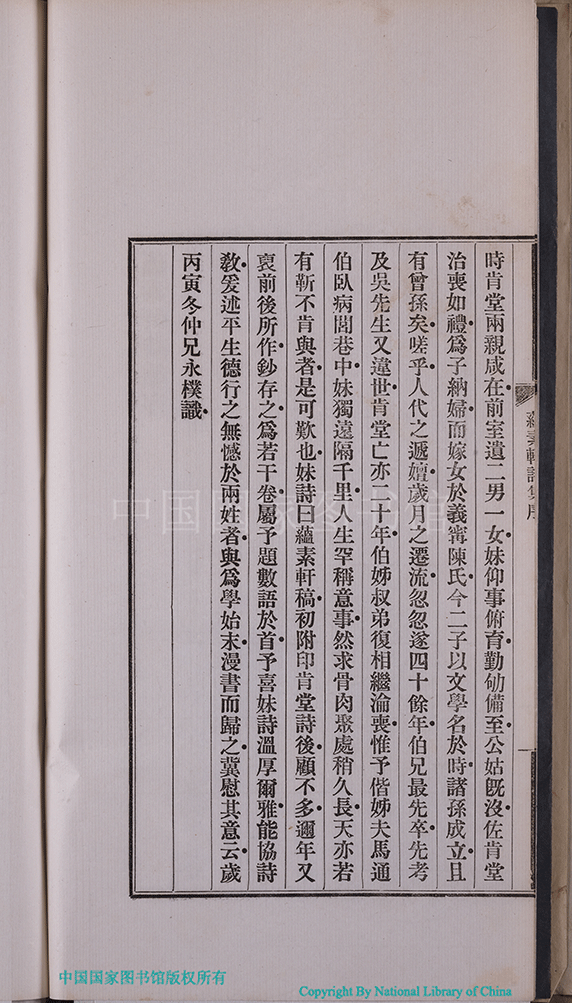 蘊素軒詩集序
一
時肯堂兩親咸在前室遺二男一女妹仰事俯育勤劬備至公姑既沒佐肯堂
治喪如禮爲子納婦而嫁女於義甯陳氏今二子以文學名於時諸孫成立且
有曾孫矣嗟乎人代之遞嬗歲月之遷流忽忽遂四十餘年伯兄最先卒先考
及吳先生又違世肯堂亡亦二十年伯姊叔弟復相繼淪喪惟予偕姊夫馬通
伯臥病閭巷中妹獨遠隔千里人生罕稱意事然求骨肉聚處稍久長天亦若
有靳不肯與者是可歎也妹詩曰蘊素軒稿初附印肯堂詩後顧不多邇年又
裒前後所作鈔存之爲若干卷屬予題數語於首予喜妹詩溫厚爾雅能協詩
教爰述平生德行之無憾於兩姓者與爲學始末漫書而歸之冀慰其意云歲
丙寅冬仲兄永樸識
中国国家图书馆
中国国家图书馆版权所有
Copyright By National Library of China